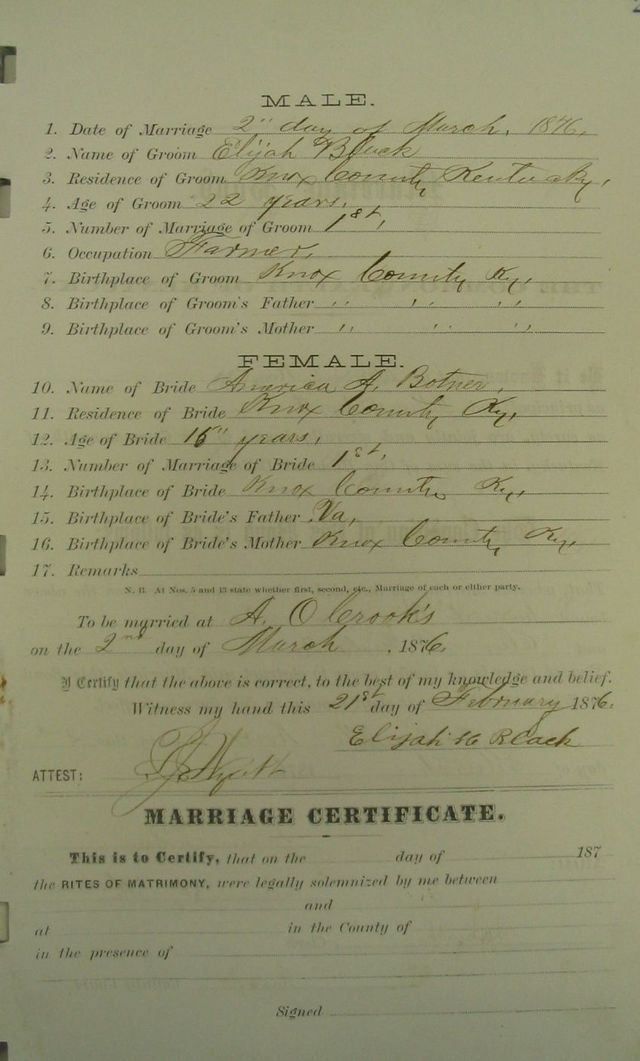 MALE.
1. Date of Marriage 2" day of March, 1876,
2. Name of Groom Elijah Black
3. Residence of Groom Knox County Kentucky,
4. Age of Groom 22 years,
5. Number of Marriage of Groom 1st,
6. Occupation Farmer,
7. Birthplace of Groom Knox County Ky,
8. Birthplace of Groom's Father " " "
9. Birthplace of Groom's Mother " " "
FEMALE.
10. Name of Bride America A. Botner,
11. Residence of Bride Knox County Ky,
12. Age of Bride years,
13. Number of Marriage of Bride 1st,
14. Birthplace of Bride Knox County Ky,
15. Birthplace of Bride's Father Va,
16. Birthplace of Bride's Mother Knox County Ky,
17. Remarks
N. B. At Nos. 5 and 13 state whether first, second, etc., Marriage of each or either party.
To be married at A. O Crook's
on the 2nd day of March, 1876.
I Certify that the above is correct, to the best of my knowledge and belief.
Witness my hand this 21st day of February 1876.
Elijah Black
ATTEST:
MARRIAGE CERTIFICATE.
This is to Certify, that on the day of 187
the RITES OF MATRIMONY, were legally solemnized by me between
and
at in the County of
in the presence of
Signed